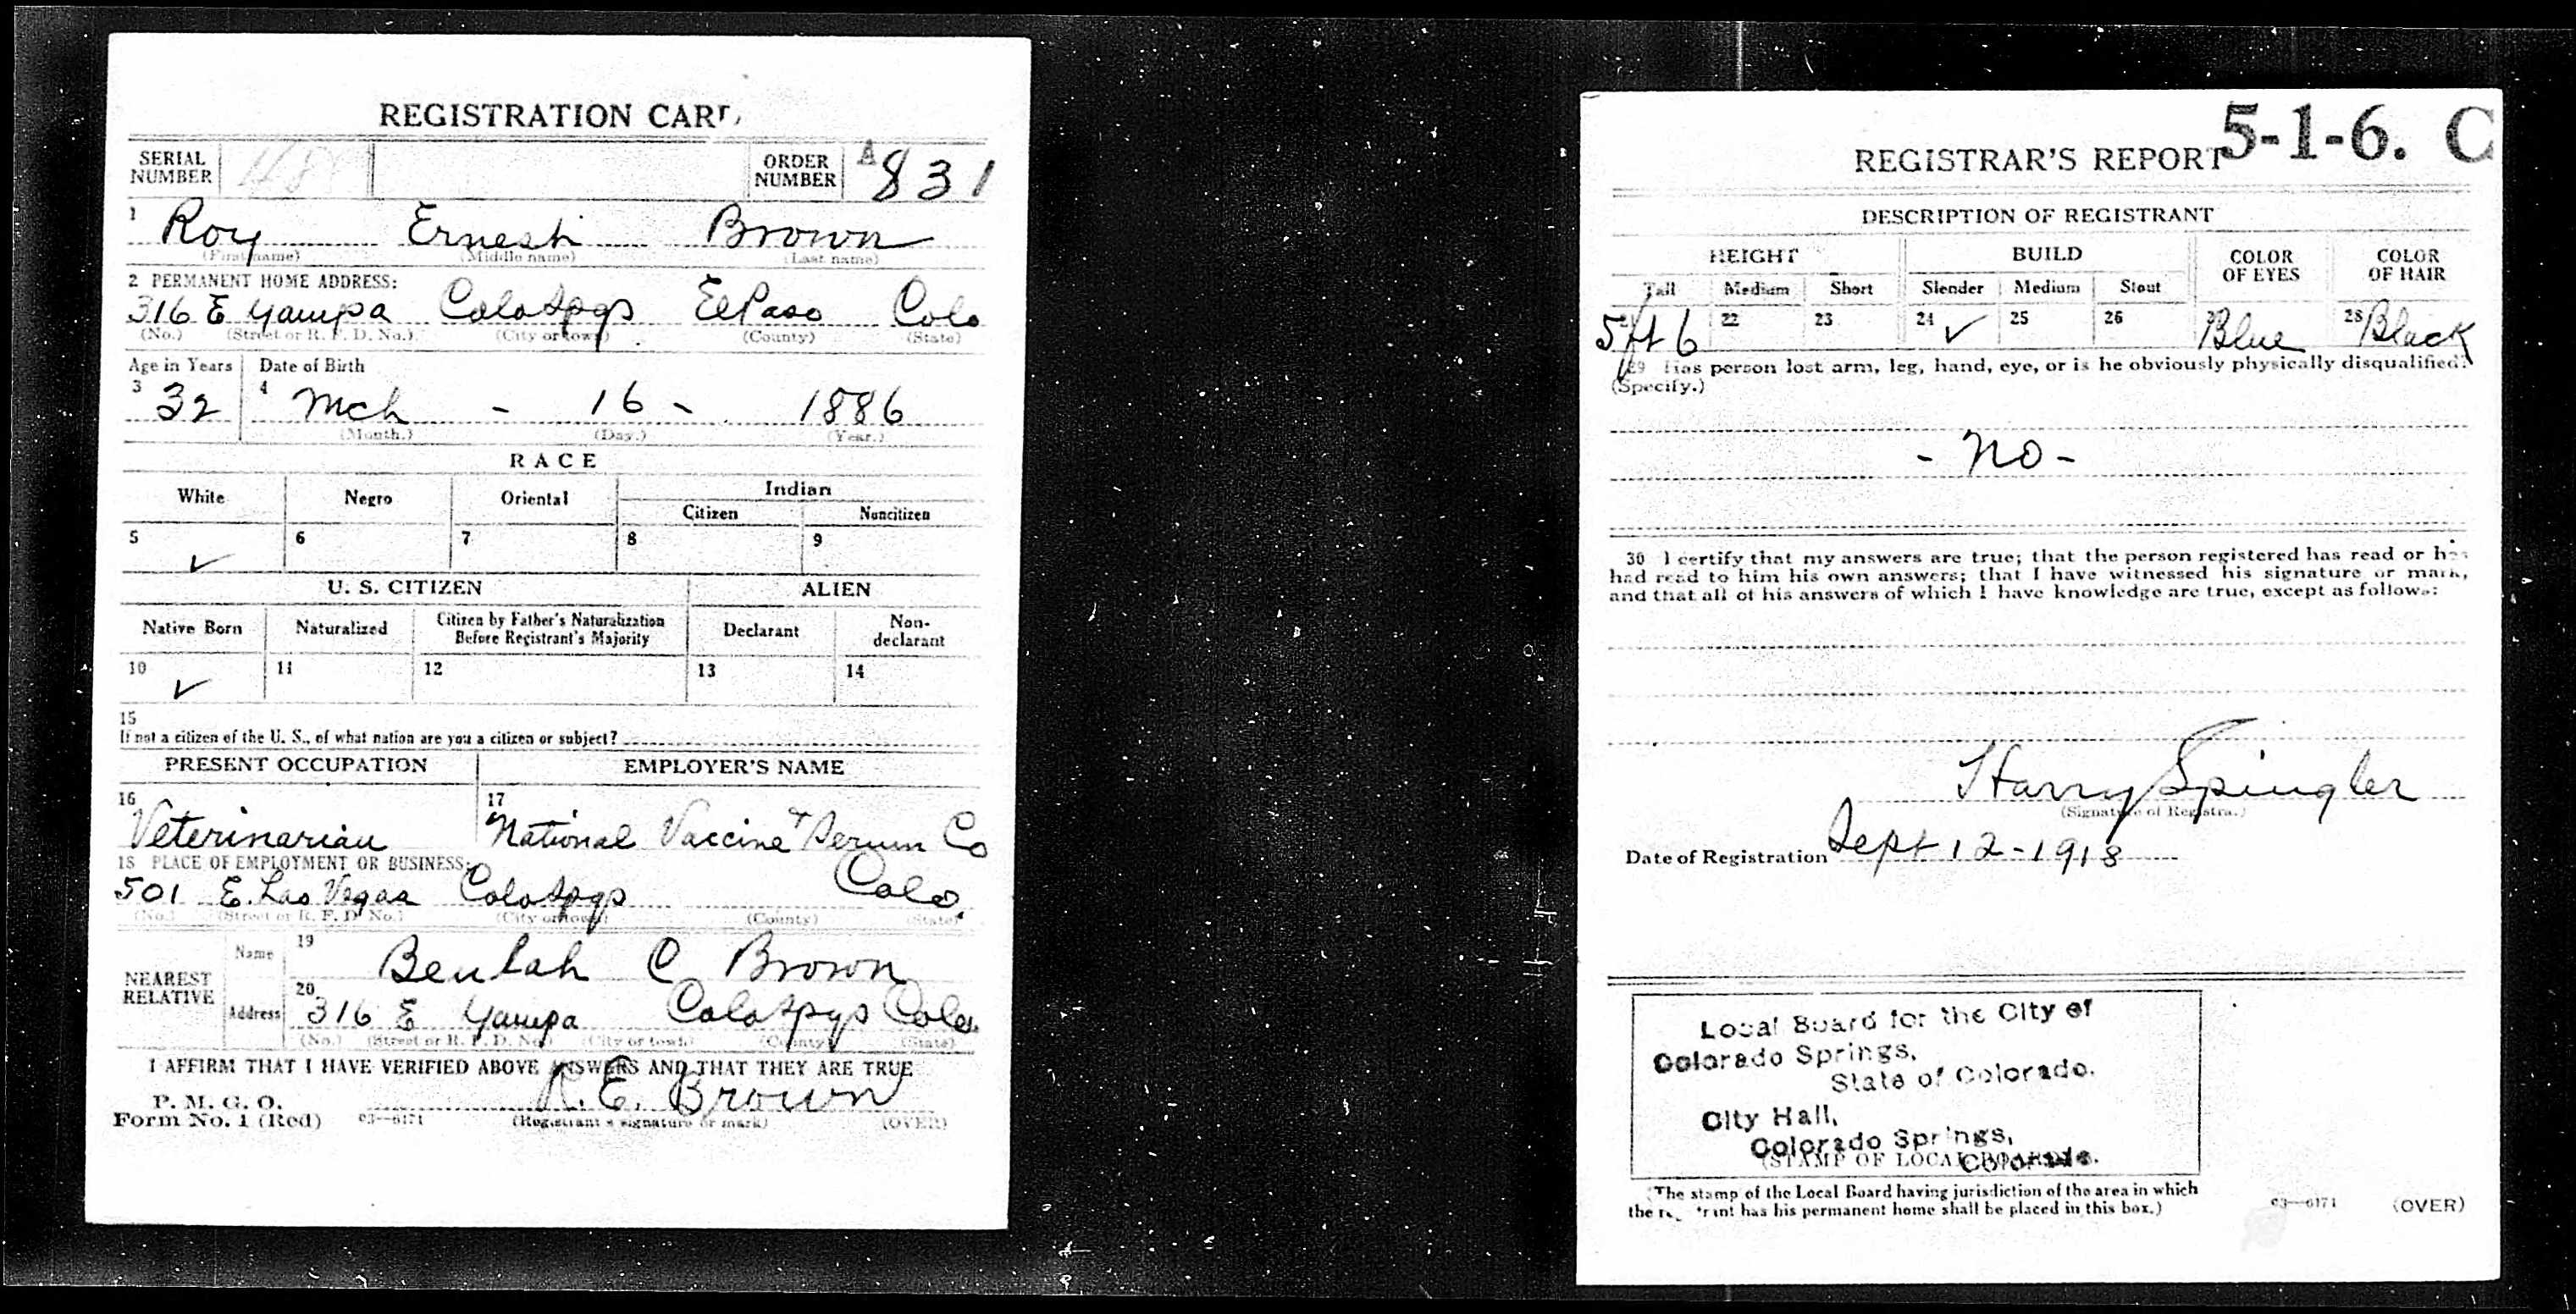 REGISTRATION CARD
SERIAL NUMBER ORDER NUMBER A 831
1 Roy Ernest Brown
(First name) (Middle name) (Last name)
2 PERMANENT HOME ADDRESS:
316 E Yampa ColoSpgs ElPaso Colo
(No.) (Street or R. F. D. No.) (City or town) (County) (State)
Age in Years Date of Birth
3 32 4 Mch - 16 - 1886
(Month.) (Day.) (Year.)
RACE
White Negro Oriental Indian
Citizen Noncitizen
5 ✓ 6 7 8 9
U. S. CITIZEN ALIEN
Native Born Naturalized Citizen by Father's Naturalization Before Registrant's Majority Declarant Non-declarant
10 ✓ 11 12 13 14
15
If not a citizen of the U. S., of what nation are you a citizen or subject?
PRESENT OCCUPATION EMPLOYER'S NAME
16 Veterinarian 17 National Vaccine + Serum Co
18 PLACE OF EMPLOYMENT OR BUSINESS:
501 E. Las Vegas ColoSpgs Colo.
(No.) (Street or R. F. D. No.) (City or town) (County) (State)
NEAREST RELATIVE
Name 19 Beulah C Brown
Address 20 316 E Yampa ColoSpgs Colo.
(No.) (Street or R. F. D. No.) (City or town) (County) (State)
I AFFIRM THAT I HAVE VERIFIED ABOVE ANSWERS AND THAT THEY ARE TRUE
R. E. Brown
P. M. G. O.
Form No. 1 (Red) 03—6171 (Registrant's signature or mark) (OVER)
5-1-6. C
REGISTRAR'S REPORT
DESCRIPTION OF REGISTRANT
HEIGHT BUILD COLOR OF EYES COLOR OF HAIR
Tall Medium Short Slender Medium Stout
21 5ft 6 22 23 24 ✓ 25 26 27 Blue 28 Black
29 Has person lost arm, leg, hand, eye, or is he obviously physically disqualified?
(Specify.)
- No -
30 I certify that my answers are true; that the person registered has read or has
had read to him his own answers; that I have witnessed his signature or mark,
and that all of his answers of which I have knowledge are true, except as follows:
Harry Spingler
(Signature of Registrar.)
Date of Registration Sept 12-1918
Local Board for the City of
Colorado Springs,
State of Colorado.
City Hall,
Colorado Springs,
Colorado.
(STAMP OF LOCAL BOARD)
(The stamp of the Local Board having jurisdiction of the area in which
the registrant has his permanent home shall be placed in this box.)
03—6171 (OVER)